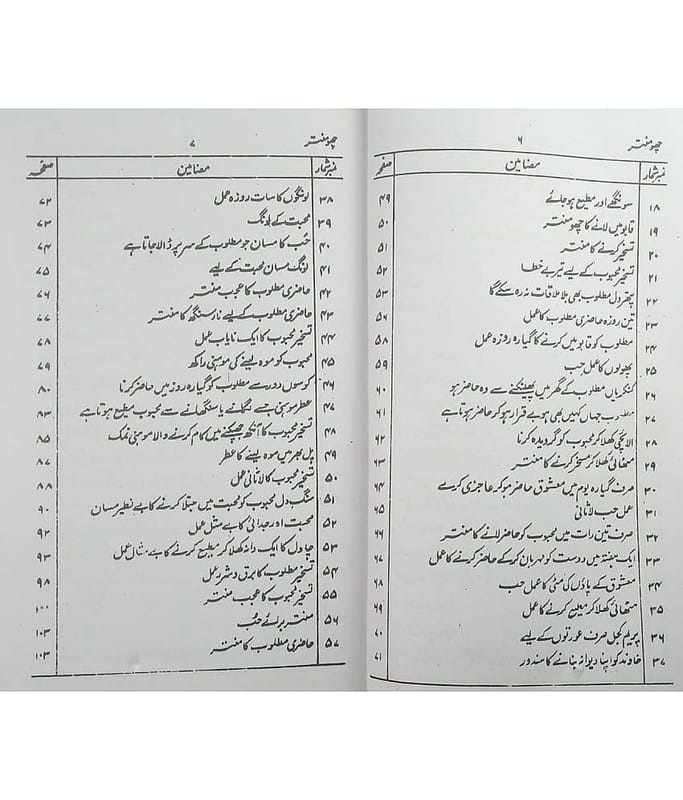 چھومنتر ۶
نمبرشمار مضامین صفحہ
۱۸ سونگھے اور مطیع ہوجائے ۴۹
۱۹ قابو میں لانے کا چھومنتر ۵۰
۲۰ تسخیر کرنے کا منتر ۵۱
۲۱ تسخیر محبوب کے لیے تیر بے خطا ۵۲
۲۲ پتھر دل مطلوب بھی بلا ملاقات نہ رہ سکے گا ۵۳
۲۳ تین روزہ حاضری مطلوب کا عمل ۵۶
۲۴ مطلوب کو قابو میں کرنے کا گیارہ روزہ عمل ۵۸
۲۵ پھولوں کا عمل حب ۵۹
۲۶ کنکریاں مطلوب کے گھر میں پھینکنے سے وہ حاضر ہو ۶۰
۲۷ مطلوب جہاں کہیں بھی ہو بے قرار ہو کر حاضر ہوتا ہے ۶۱
۲۸ الائچی کھلا کر محبوب کو گرویدہ کرنا ۶۲
۲۹ مٹھائی کھلا کر مسخر کرنے کا منتر ۶۳
۳۰ صرف گیارہ یوم میں معشوق حاضر ہو کر عاجزی کرے ۶۴
۳۱ عمل حب لاثانی ۶۵
۳۲ صرف تین رات میں محبوب کو حاضر لانے کا منتر ۶۶
۳۳ ایک ہفتہ میں دوست کو مہربان کرکے حاضر کرنے کا عمل ۶۷
۳۴ معشوق کے پاؤں کی مٹی کا عمل حب ۶۸
۳۵ مٹھائی کھلا کر مطیع کرنے کا عمل ۶۹
۳۶ پریم کجل صرف عورتوں کے لیے ۷۰
۳۷ خاوند کو اپنا دیوانہ بنانے کا سندور ۷۱
چھومنتر ۷
نمبرشمار مضامین صفحہ
۳۸ لونگوں کا سات روزہ عمل ۷۲
۳۹ محبت کے لونگ ۷۳
۴۰ حُب کا مسان جو مطلوب کے سر پر ڈالا جاتا ہے ۷۴
۴۱ لونگ مسان محبت کے لیے ۷۵
۴۲ حاضری مطلوب کا عجب منتر ۷۶
۴۳ حاضری مطلوب کے لیے نارسنگھ کا منتر ۷۷
۴۴ تسخیر محبوب کا ایک نایاب عمل ۷۸
۴۵ محبوب کو موہ لینے کی موہنی راکھ ۷۹
۴۶ کوسوں دور سے مطلوب کو گیارہ روز میں حاضر کرنا ۸۰
۴۷ عطر موہنی جسے لگانے یا سنگھانے سے محبوب مطیع ہوتا ہے ۸۳
۴۸ تسخیر محبوب کا آنکھ جھپکنے میں کام کرنے والا موہنی نمک ۸۵
۴۹ پل بھر میں موہ لینے کا عطر ۸۷
۵۰ تسخیر محبوب کا لاثانی عمل ۸۸
۵۱ سنگ دل محبوب کو محبت میں مبتلا کرنے کا بے نظیر مسان ۹۰
۵۲ محبت اور جدائی کا بے مثل عمل ۹۲
۵۳ چاول کا ایک دانہ کھلا کر مطیع کرنے کا بے مثال عمل ۹۳
۵۴ تسخیر مطلوب کا برق و شرر عمل ۹۸
۵۵ تسخیر محبوب کا عجب منتر ۱۰۰
۵۶ منتر برائے حُب ۱۰۳
۵۷ حاضری مطلوب کا منتر ۱۰۳